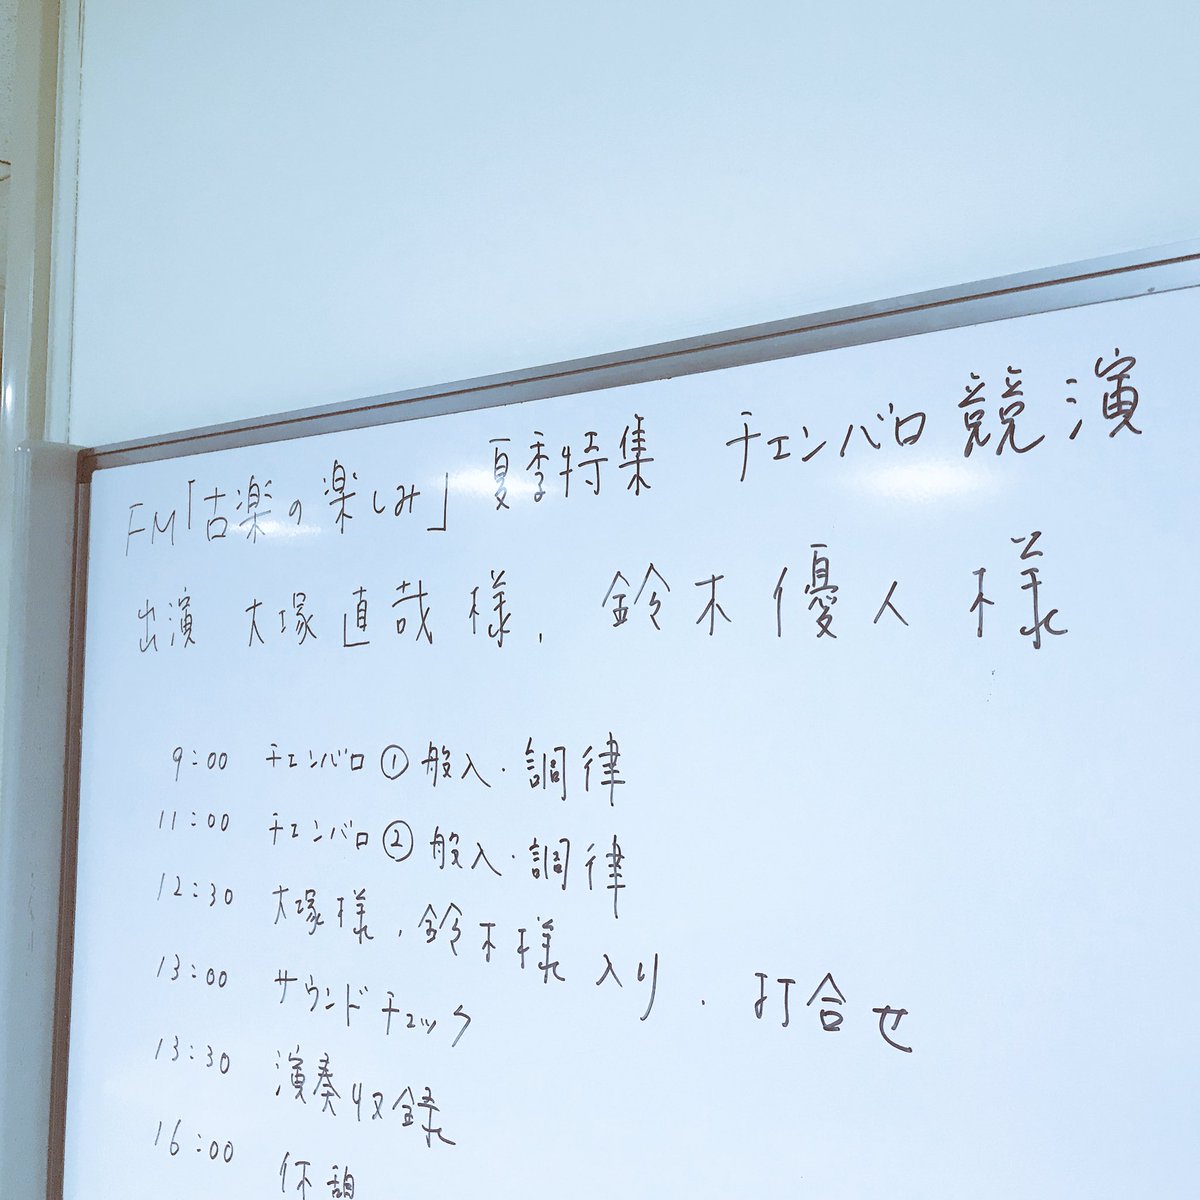 FM「古楽の楽しみ」夏季特集 チェンバロ競演
出演 大塚直哉様、鈴木優人様
9:00 チェンバロ①般入・調律
11:00 チェンバロ②般入・調律
12:30 大塚様、鈴木様入り、打合せ
13:00 サウンドチェック
13:30 演奏収録
16:00 休憩